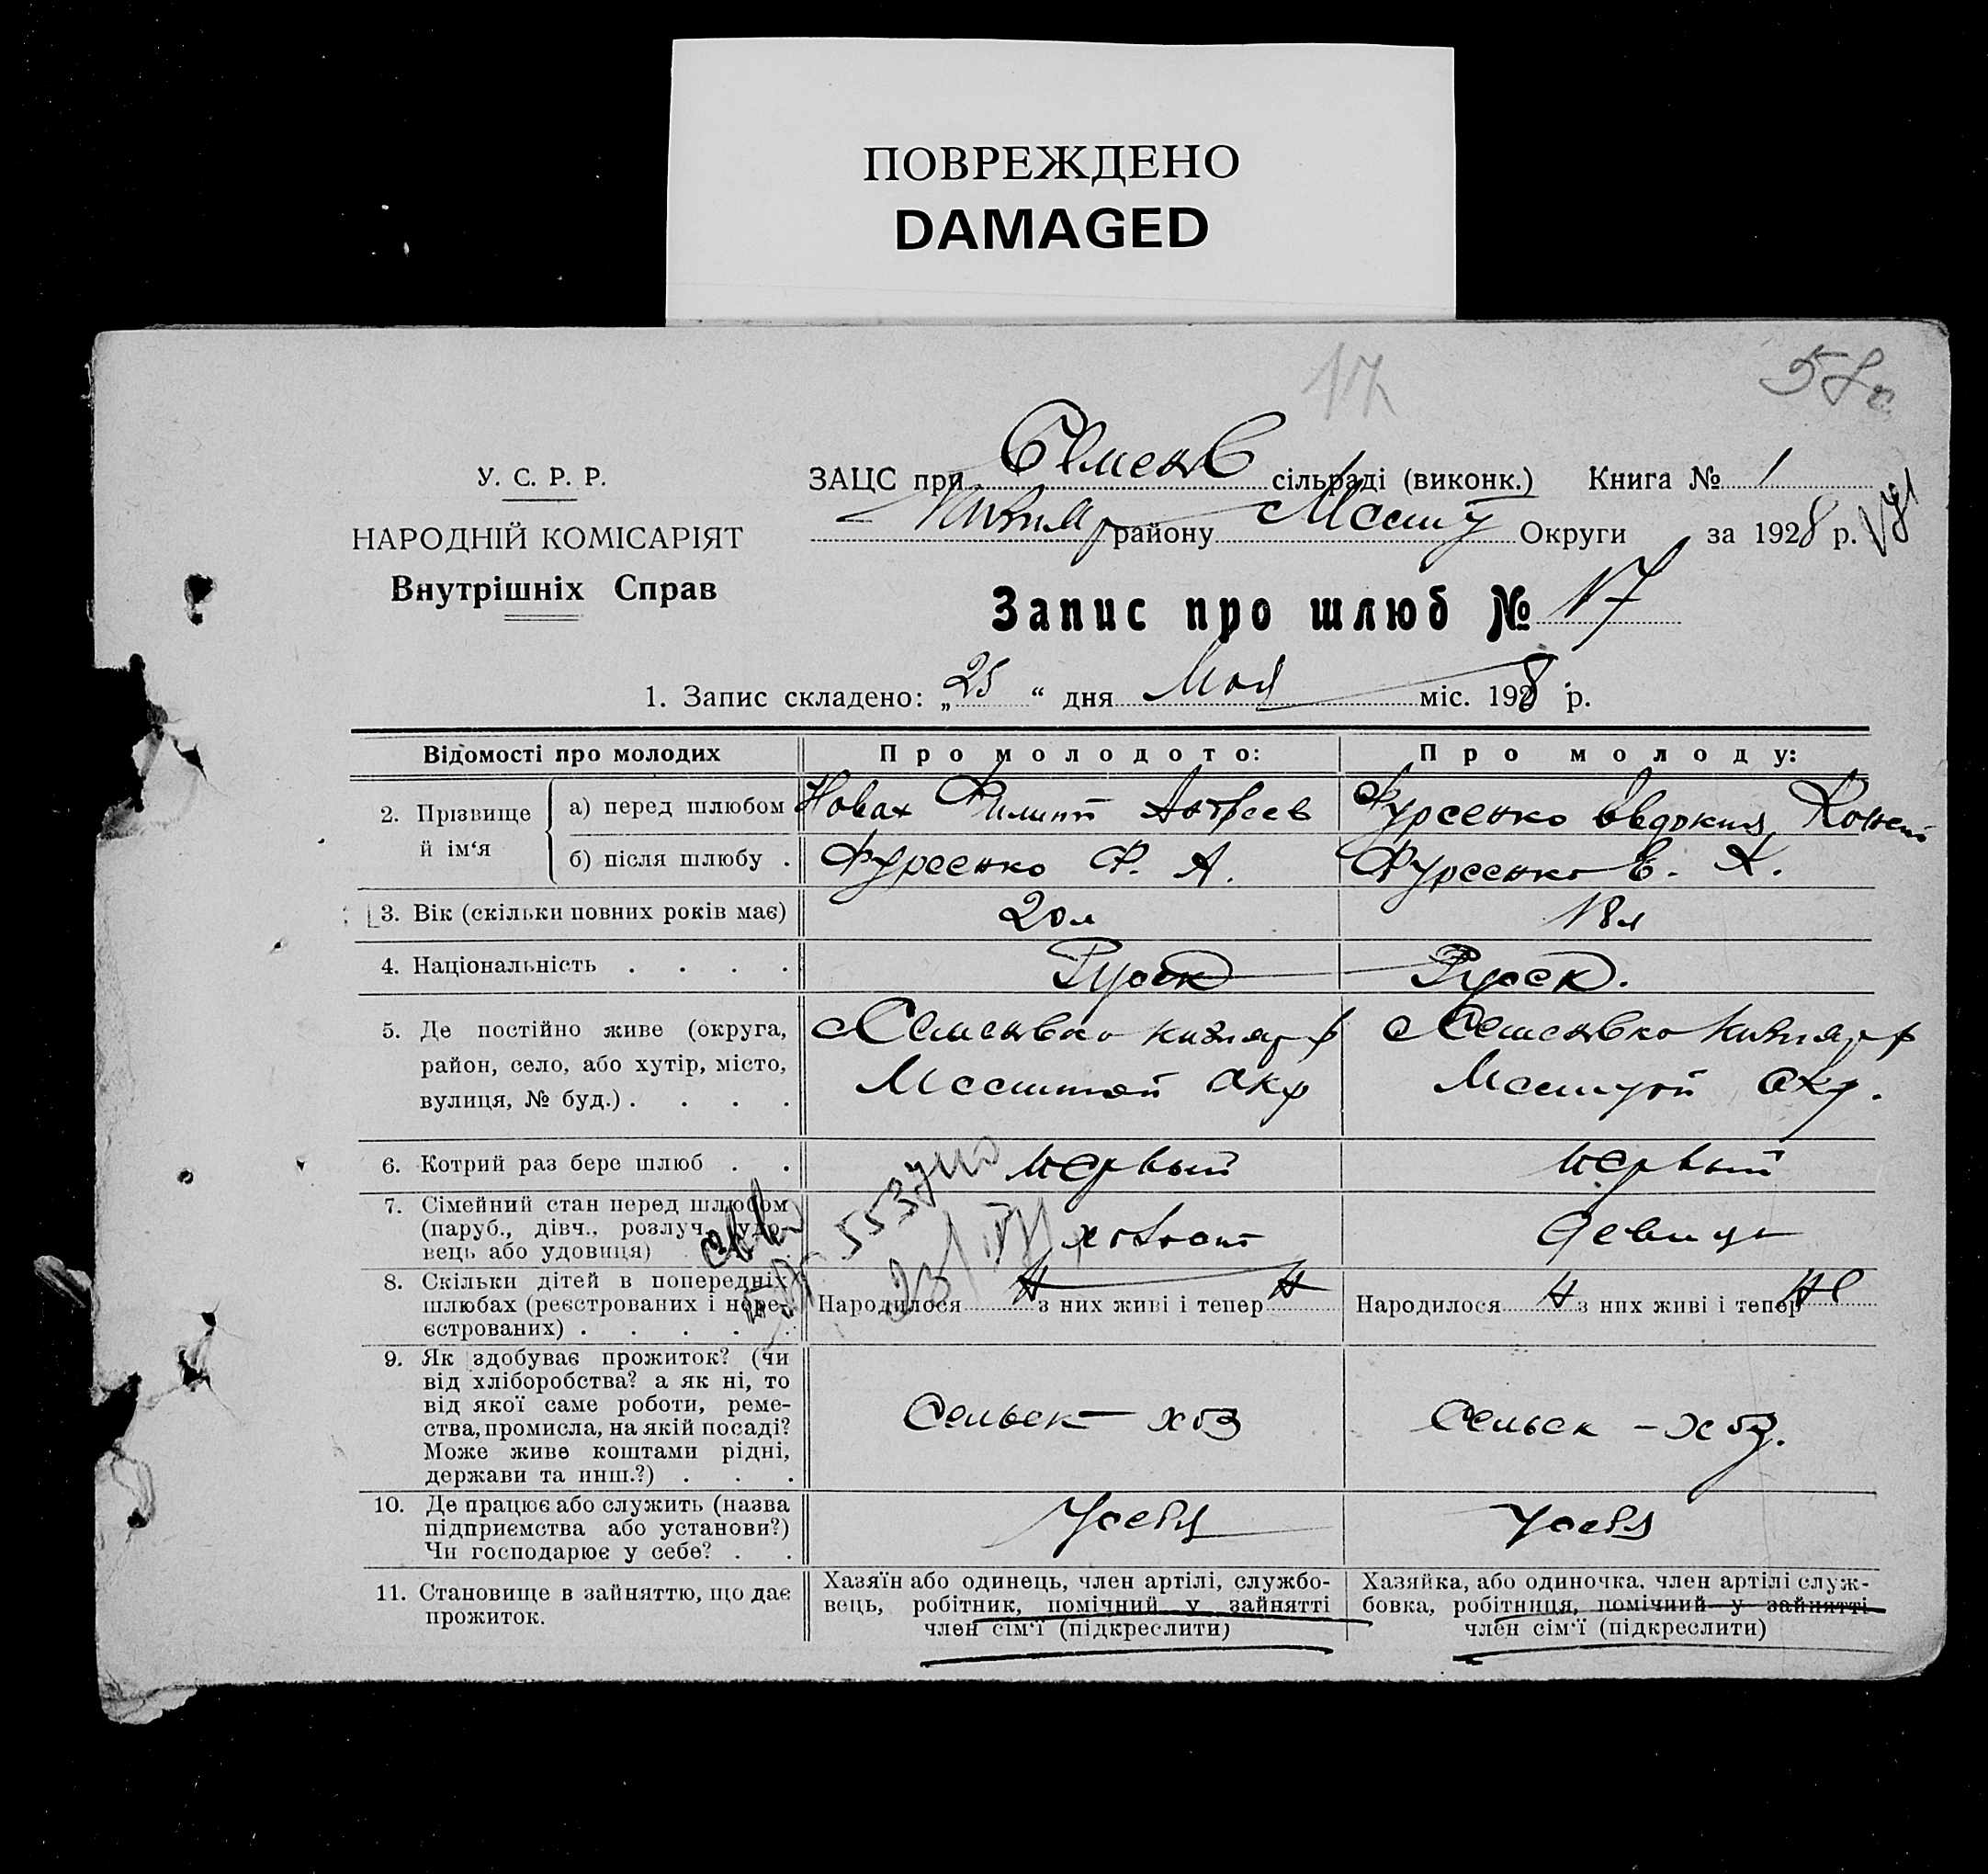 ПОВРЕЖДЕНО
DAMAGED
17
У. С. Р. Р.
НАРОДНІЙ КОМІСАРІЯТ
Внутрішніх Справ
ЗАЦС при Семенв сільраді (виконк.) Книга № 1
району Округи за 1928 р.
Запис про шлюб № 17
1. Запис складено: „25“ дня Мая міс. 1928 р.
Відомості про молодих Про молодого: Про молоду:
2. Прізвище й ім‘я
а) перед шлюбом Новах Филипп Андреев Фурсенко Евдокия
б) після шлюбу . Фурсенко Ф. А. Фурсенко Е. К.
3. Вік (скільки повних років має) 20 л 18 л
4. Національність . . . . Руск Русск.
5. Де постійно живе (округа,
район, село, або хутір, місто,
вулиця, № буд.) . . . .
Семеновко
окр
Семеновко
окр.
6. Котрий раз бере шлюб . . первый первый
7. Сімейний стан перед шлюбом
(паруб., дівч., розлуч., удо-
вець або удовиця)
холост девица
8. Скільки дітей в попередніх
шлюбах (реєстрованих і нере-
єстрованих) . . . . .
Народилося н з них живі і тепер н
Народилося н з них живі і тепер не
9. Як здобуває прожиток? (чи
від хліборобства? а як ні, то
від якої саме роботи, реме-
ства, промисла, на якій посаді?
Може живе коштами рідні,
держави та инш.?) . . .
Сельск хоз Сельск - хоз.
10. Де працює або служить (назва
підприємства або установи?)
Чи господарює у себе? . .
У себя У себя
11. Становище в зайняттю, що дає
прожиток.
Хазяїн або одинець, член артілі, службо-
вець, робітник, помічний у зайнятті
член сім‘ї (підкреслити)
Хазяйка, або одиночка, член артілі служ-
бовка, робітниця, помічний у зайнятті
член сім‘ї (підкреслити)